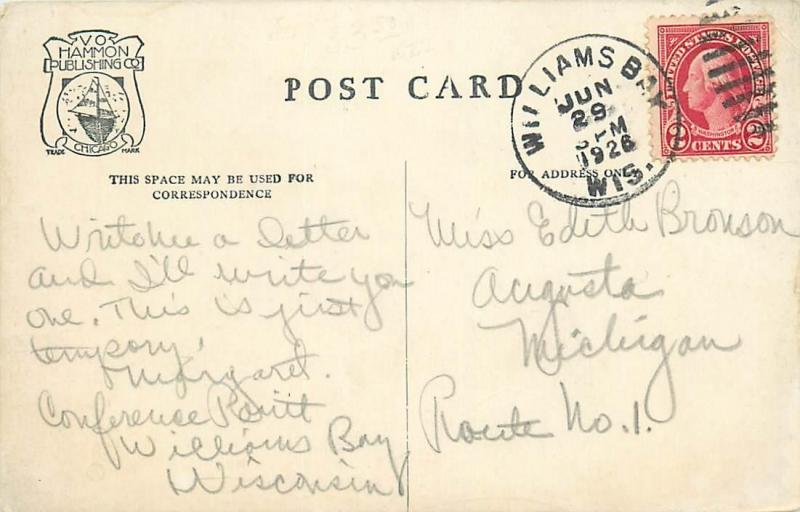 V.O.
HAMMON
PUBLISHING CO
TRADE MARK
CHICAGO
POST CARD
THIS SPACE MAY BE USED FOR
CORRESPONDENCE
FOR ADDRESS ONLY
WILLIAMS BAY
JUN
29
PM
1926
WIS.
UNITED STATES POSTAGE
WASHINGTON
2 CENTS 2
Write me a letter
and I'll write you
one. This is just
tempory,
Margaret.
Conference Point
Williams Bay
Wisconsin
Miss Edith Bronson
Augusta
Michigan
Route No. 1.